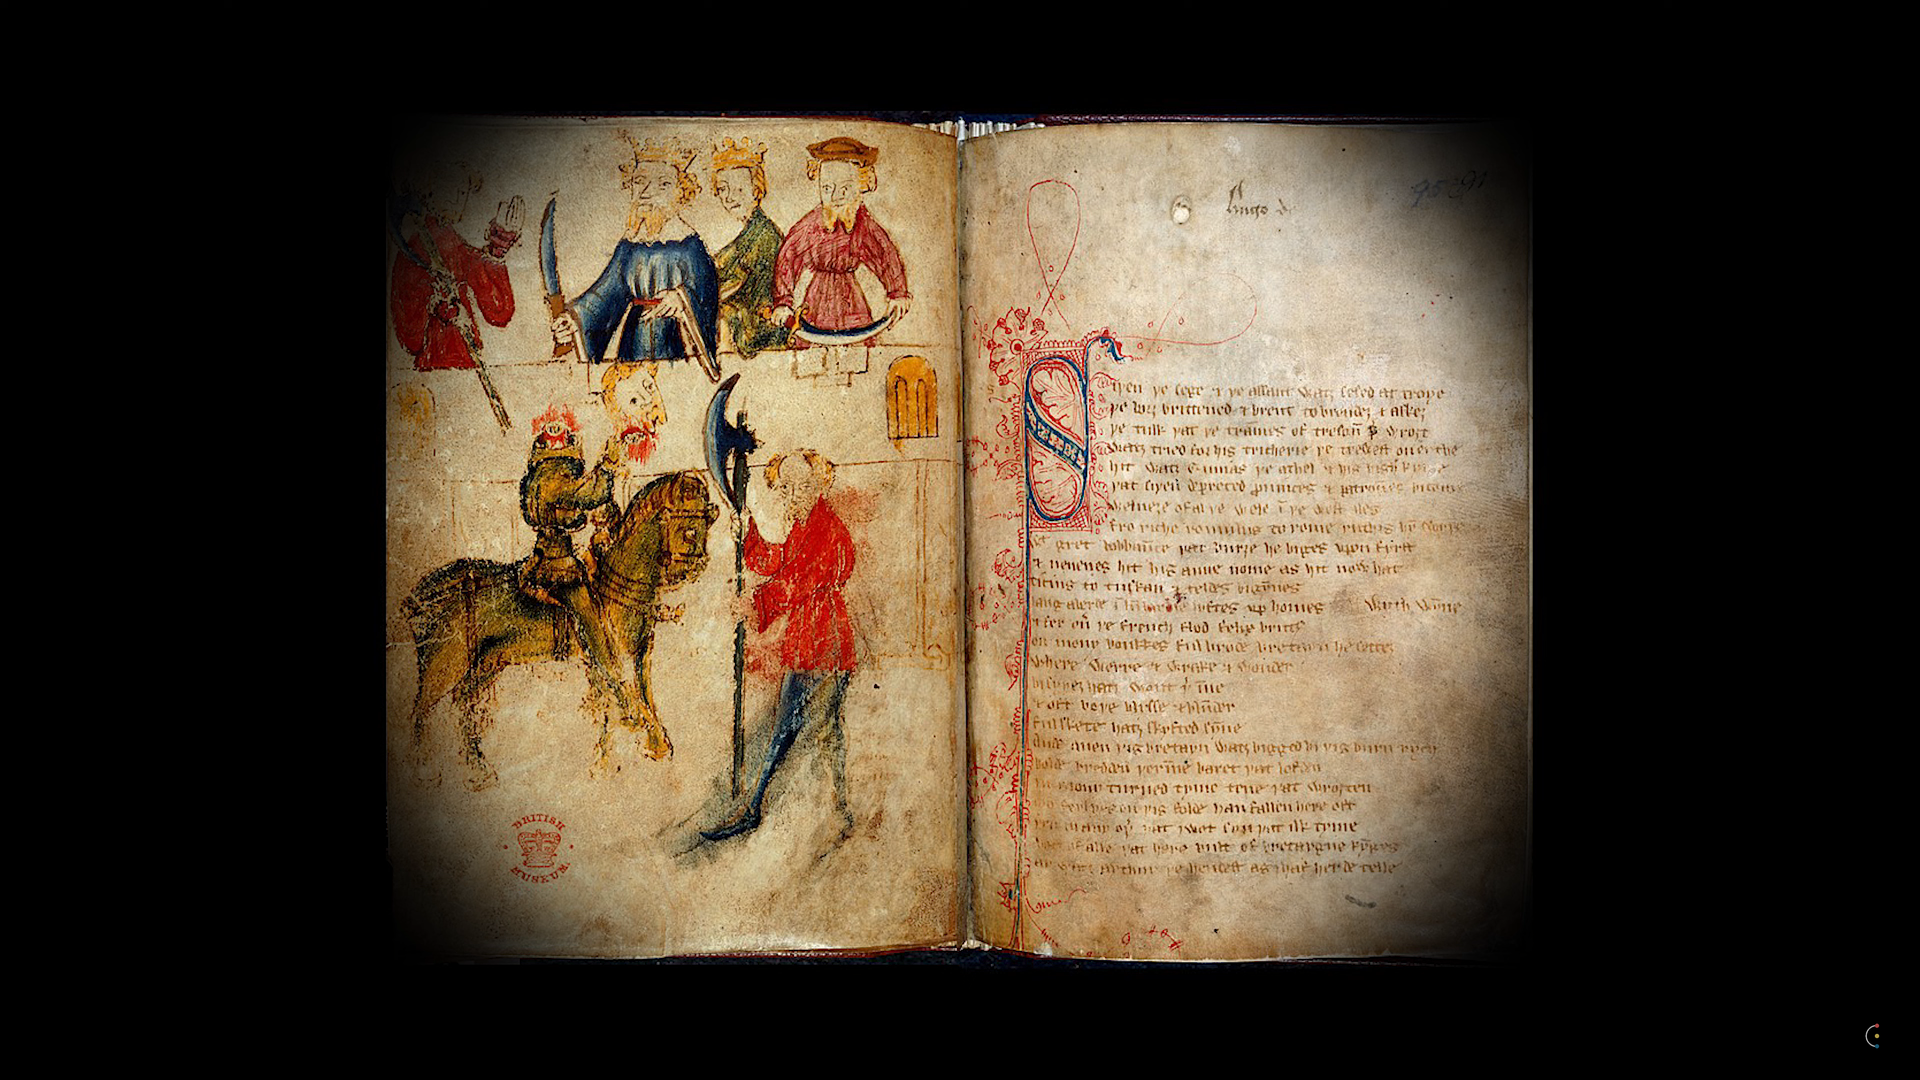 BRITISH
MUSEUM
Hugo de
Siþen þe sege & þe assaut watz sesed at troye
þe borȝ brittened & brent to brondez & askez
þe tulk þat þe tram̄es of tresoū þ wroȝt
Watz tried for his tricherie þe trewest on erthe
hit watz Ennias þe athel & his highe kynde
þat siþen depreced prouinces & patroūes bicome
Welneȝe of al þe wele ī þe west iles
fro riche romulus to rome ricchis hȳ swyþe
gret bobbaūce þat burȝe he biges vpon fyrst
& neuenes hit his aune nome as hit now hat
ticius to tuskan & teldes bigȳnes
lyftes vp homes wyth wȳne
& fer oū þe french flod felix brutꝰ
on mony bonkkes ful brode bretayn he settez
where werre & wrake & wonder
bi syþez hatz wont þ īne
& oft boþe blysse & blūder
ful skete hatz skyfted sȳne
Ande quen þis bretayn watz bigged bi þis burn rych
bolde bredden þerīne baret þat lofden
mony turned tyme tene þat wroȝten
ferlyes on þis folde han fallen here oft
any oþ þat I wot syn þat ilk tyme
bot of alle þat here bult of bretaygne kȳges
ay watz arthur þe hendest as I haf herde telle